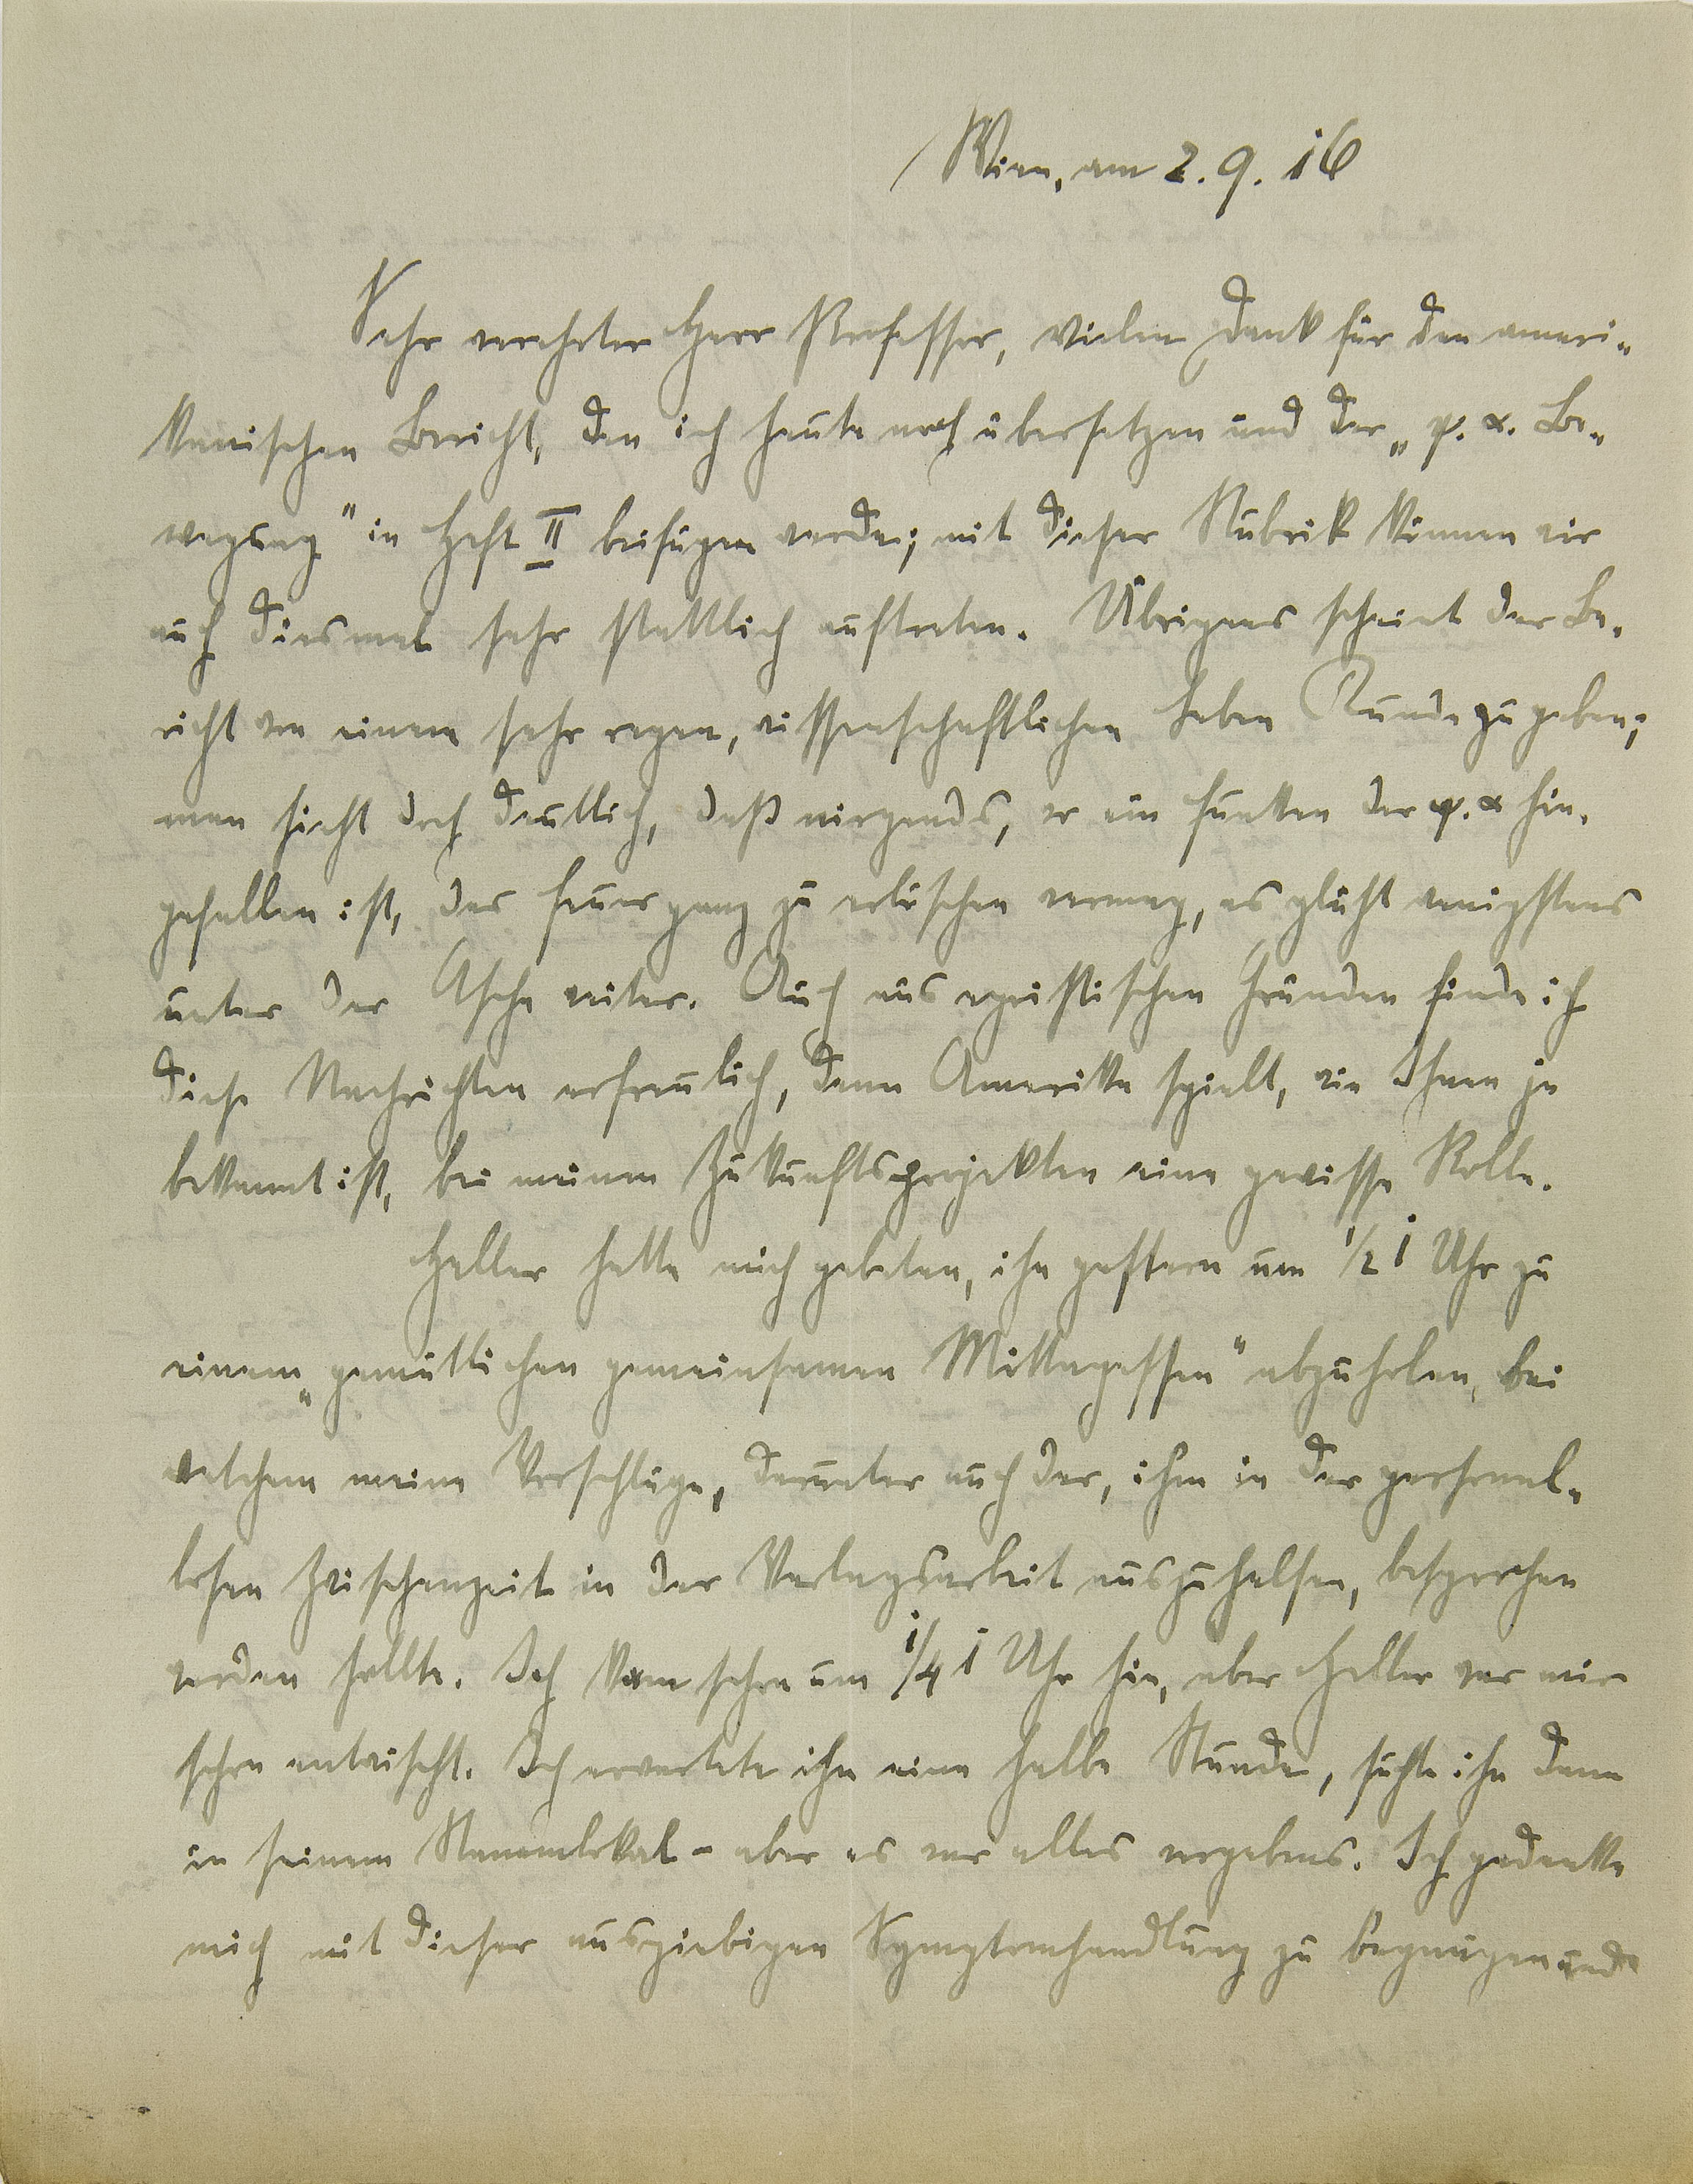 Wien, am 2. 9. 16
Sehr verehrter Herr Professor, vielen Dank für den ameri-
kanischen Bericht, den ich heute noch übersetzen und der „ψ. α. Be-
wegung" in Heft II beifügen werde; mit dieser Rubrik können wir
auch diesmal sehr stattlich auftreten. Übrigens scheint der Be-
richt von einem sehr regen, wissenschaftlichen Leben Kunde zu geben;
man sieht doch deutlich, daß nirgends, wo ein Funken der ψ. α hin-
gefallen ist, das Feuer ganz zu erlöschen vermag, es glüht wenigstens
unter der Asche weiter. Auch aus egoistischen Gründen finde ich
diese Nachrichten erfreulich, denn Amerika spielt, wie Ihnen ja
bekannt ist, bei meinen Zukunftsprojekten eine gewisse Rolle.
Heller hatte mich gebeten, ihn gestern um 1/2 1 Uhr zu
einem „gemütlichen gemeinsamen Mittagessen" abzuholen, bei
welchem meine Vorschläge, darunter auch der, ihm in der personal-
losen Zwischenzeit in der Verlagsarbeit auszuhelfen, besprochen
werden sollte. Ich kam schon um 1/4 1 Uhr hin, aber Heller war mir
schon entwischt. Ich erwartete ihn eine halbe Stunde, suchte ihn dann
in seinem Stammlokal - aber es war alles vergebens. Ich gedenke
mich mit dieser ausgiebigen Symptomhandlung zu begnügen und